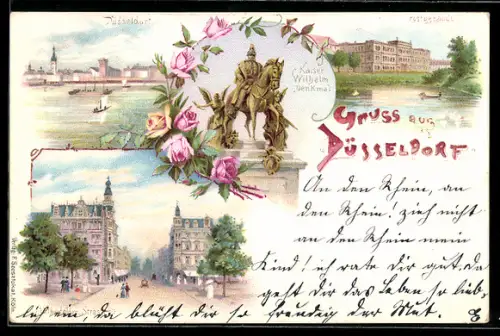 Düsseldorf
Kaiser
Wilhelm
Denkmal
Gruss aus
Düsseldorf
An den Rhein, an
den Rhein! zieh nicht
an den Rhein mein
Kind! ich rate dir gut. da
geht dir das Leben so lieb-
lich ein da blüht dir so freudig der Mut.